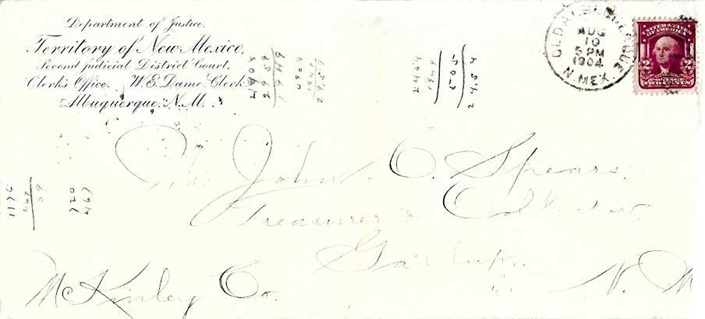 Department of Justice.
Territory of New Mexico,
Second Judicial District Court,
Clerk's Office. W.E. Dame, Clerk
Albuquerque, N.M.
OLD ALBUQUERQUE
AUG
10
5 PM
1904
N. MEX.
2 2
Mr. John C. Spears,
Treasurer & Collector
Gallup,
McKinley Co. N. M